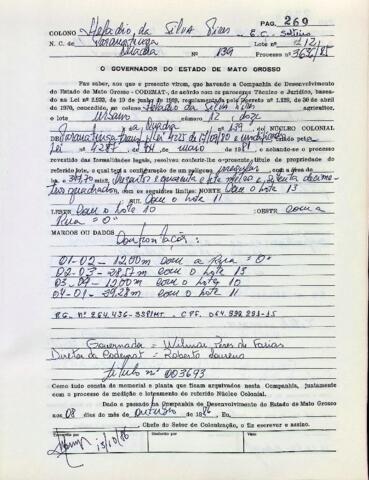 PAG. 269
COLONO Heladio da Silva Pires E.C. Solteiro
N. C. de Paranatinga Lote nº 12
Quadra Nº 139 Processo nº 3636/85
O GOVERNADOR DO ESTADO DE MATO GROSSO
Faz saber, aos que o presente virem, que havendo a Companhia de Desenvolvimento
do Estado de Mato Grosso - CODEMAT, de acordo com os pareceres Técnico e Jurídico, baseados
na Lei nº 2.922, de 10 de junho de 1969, regulamentada pelo Decreto nº 1.225, de 30 de abril
de 1970, concedido, ao colono Heladio da Silva Pires agricultor,
o lote urbano Nº 12, doze
Quadra nº 139, do NÚCLEO COLONIAL
DE Paranatinga
Lei 4287, de maio 1981, e achando-se o processo
revestido das formalidades legais, resolveu conferir-lhe o presente título de propriedade do
referido lote, o qual terá a configuração de um polígono irregular com a área de
com os seguintes limites: NORTE Com o lote 13
SUL Com o lote 11
LESTE Com o lote 10 :OESTE com a
Rua = "O"
MARCOS OU DADOS
Confrontações:
01-02 — 12,00m com a Rua = "O"
02-03 — 38,57m com o lote 13
03-04 — 12,00m com o lote 10
04-01 — 39,28m com o lote 11
Governador = Wilmar Peres de Farias
Diretor da Codemat = Roberto Loureiro
Título nº 003693
Como tudo consta do memorial e planta que ficam arquivados nesta Companhia, juntamente
com o processo de medição e loteamento do referido Núcleo Colonial.
Dado e passado na Companhia de Desenvolvimento do Estado de Mato Grosso
aos 08 dias do mês de Outubro de 1986, Eu,
Chefe do Setor de Colonização, o fiz escrever e assino.
13/10/86